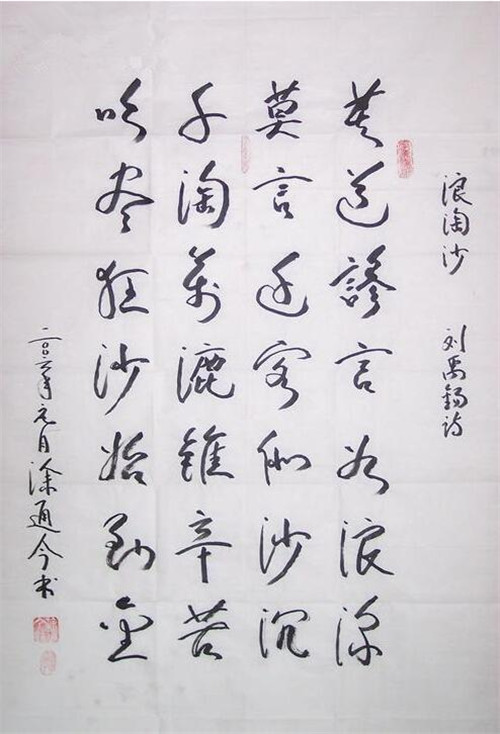 浪淘沙 刘禹锡诗
莫道謬言如浪深
莫言迁客似沙沉
千淘萬漉雖辛苦
吹尽狂沙始到金
年元月涂通今书